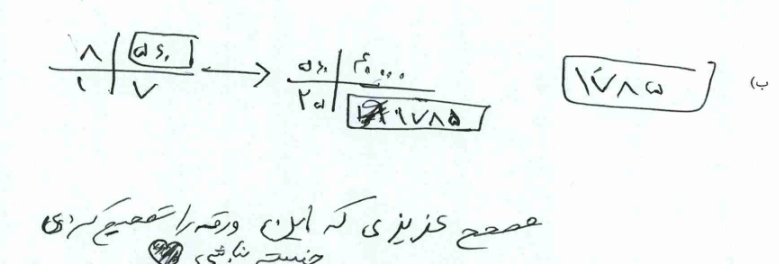 ب)
۸ | ۵۶۰ → ۵۶۰ | ۴۰۰۰۰ ۱۷۸۵
۱ | ۷ ۲۵ | ۱۷۸۵
مصحح عزیزی که این ورقه را تصحیح کردی
خسته نباشی